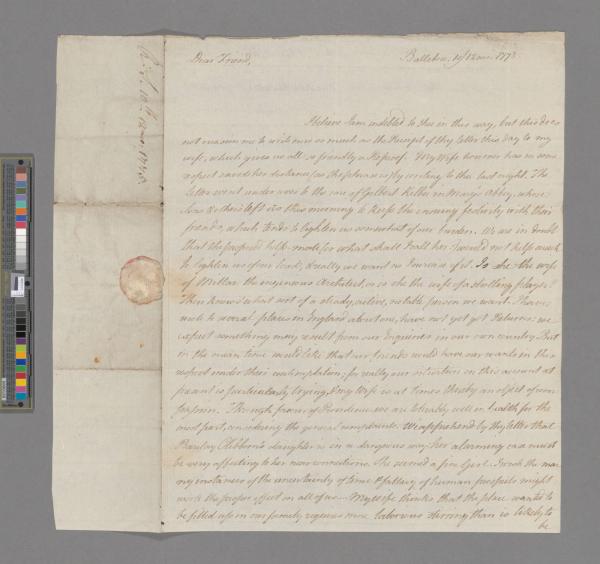 Dear Friend,
Ballitore: 19/12mo. 1778
I believe I am indebted to thee in this way, but this does
not occasion me to write now so much as the Receipt of thy letter this day to my
wife, which gives us all so friendly a Reproof. My Wife however has in some
respect saved her distance, as she was writing to thee last night. The
letter went under cover to the care of Gilbert Kelter in Mary's Abby, whose
Sons & others left us this morning to keep the ensuing festivity with their
friends, which tends to lighten us somewhat of our burden. We are in doubt
that the proposed help-mate, for what shall I call her? would not help much
to lighten us of our load, & really we want no increase of it. Is she the wife
of Millar the ingenious Architect, or is she the wife of a strolling player?
Thou knows what sort of a steady, active, notable person we want. I have
wrote to several places in England about one, have not yet got Returns: we
expect something may result from our Enquiries in our own country. But
in the mean time would like that our friends would have our wants in this
respect under their contemplation; for really our situation on this account at
present is particularly trying, & my Wife is at times thereby an object of com-
passion. Through favour of Providence we are tolerably well in health for the
most part, considering the general complaints. We apprehend by thy letter that
Barclay Clibborn's daughter is in a dangerous way: her alarming case must
be very affecting to her near connections. She seemed a fine Girl. I wish the ma-
ny instances of the uncertainty of time & fallacy of human prospects might
work the proper effect on all of us. My wife thinks that the place wanted to
be filled up in our family requires more laborious stirring than is likely to
be